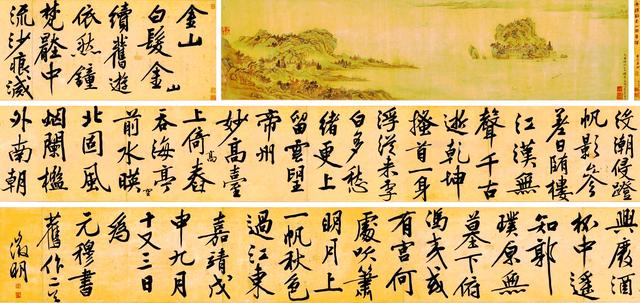 金山
白髮金山
續舊遊
依然鐘
梵壑中
流沙痕滅
沒潮侵磴
帆影參
差日随樓
江漢無
聲千古
逝乾坤
搔首一身
浮從来李
白多愁
緒更上
留雲望
帝州
妙高臺
上倚高舂
吞海亭
前水暎空
北固風
烟闌檻
外南朝
興廢酒
杯中遥
知郭
璞原無
墓下俯
馮夷或
有宫何
處吹簫
明月上
一帆秋色
過江東
嘉靖戊
申九月
十又三日
為
元穆書
舊作二首
徵明